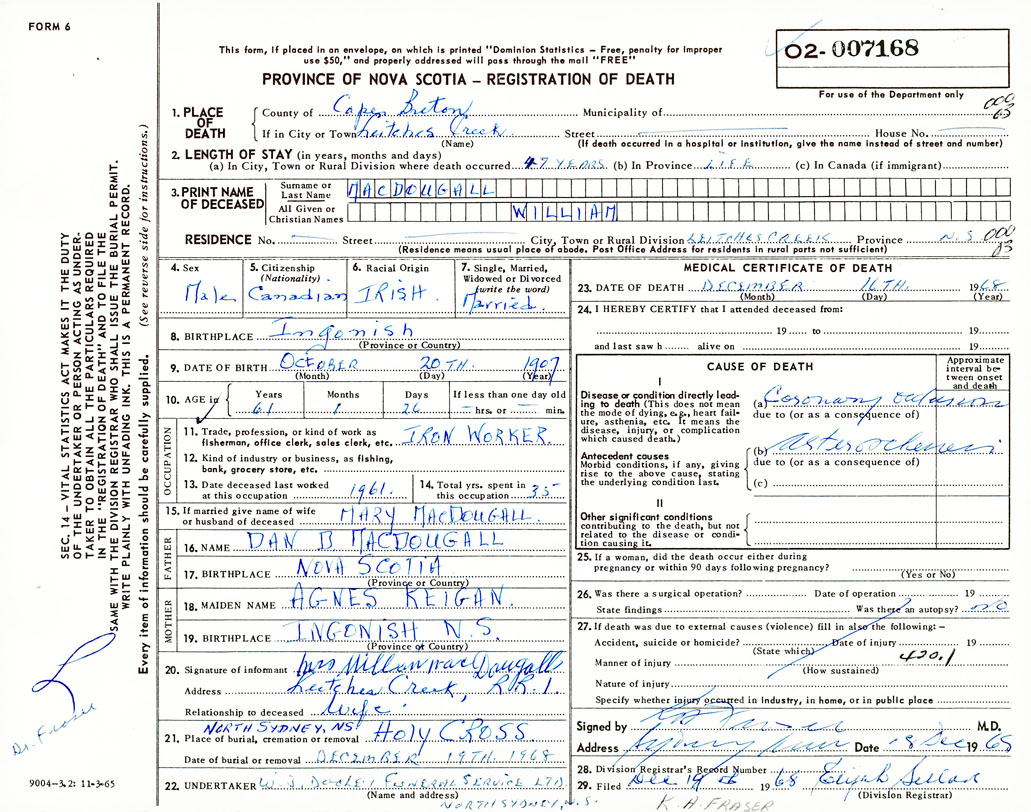 FORM 6
This form, if placed in an envelope, on which is printed "Dominion Statistics – Free, penalty for improper
use $50," and properly addressed will pass through the mail "FREE"
PROVINCE OF NOVA SCOTIA – REGISTRATION OF DEATH
02-007168
For use of the Department only
1. PLACE OF DEATH County of Cape Breton Municipality of
If in City or Town Leitches Creek Street House No.
(Name) (If death occurred in a hospital or institution, give the name instead of street and number)
000 03
2. LENGTH OF STAY (in years, months and days)
(a) In City, Town or Rural Division where death occurred 47 YEARS (b) In Province LIFE (c) In Canada (if immigrant)
3. PRINT NAME OF DECEASED Surname or Last Name MACDOUGALL
All Given or Christian Names WILLIAM
RESIDENCE No. Street City, Town or Rural Division LEITCHES CREEK Province N.S 000 03
(Residence means usual place of abode. Post Office Address for residents in rural parts not sufficient)
4. Sex Male
5. Citizenship (Nationality) Canadian
6. Racial Origin IRISH.
7. Single, Married, Widowed or Divorced (write the word) Married.
8. BIRTHPLACE Ingonish
(Province or Country)
9. DATE OF BIRTH OCTOBER 20TH. 1907
(Month) (Day) (Year)
10. AGE in Years 61 Months 1 Days 26 If less than one day old hrs. or min.
OCCUPATION
11. Trade, profession, or kind of work as
fisherman, office clerk, sales clerk, etc. IRON WORKER.
12. Kind of industry or business, as fishing,
bank, grocery store, etc.
13. Date deceased last worked at this occupation 1961.
14. Total yrs. spent in this occupation 35
15. If married give name of wife or husband of deceased MARY MACDOUGALL.
FATHER
16. NAME DAN B MACDOUGALL
17. BIRTHPLACE NOVA SCOTIA
(Province or Country)
MOTHER
18. MAIDEN NAME AGNES KEIGAN.
19. BIRTHPLACE INGONISH N.S.
(Province or Country)
20. Signature of informant Mrs Millow MacDougall
Address Leitches Creek, R.R.1.
Relationship to deceased wife.
NORTH SYDNEY, NS
21. Place of burial, cremation or removal HOLY CROSS
Date of burial or removal DECEMBER 19TH. 1968
22. UNDERTAKER W.J. FUNERAL SERVICE LTD.
(Name and address)
NORTH SYDNEY, N.S.
MEDICAL CERTIFICATE OF DEATH
23. DATE OF DEATH DECEMBER 16TH. 1968
(Month) (Day) (Year)
24. I HEREBY CERTIFY that I attended deceased from:
19 to 19
and last saw h alive on 19
CAUSE OF DEATH
Approximate interval between onset and death
I
Disease or condition directly leading to death (This does not mean the mode of dying, e.g., heart failure, asthenia, etc. It means the disease, injury, or complication which caused death.)
(a) Coronary
due to (or as a consequence of)
Antecedent causes
Morbid conditions, if any, giving rise to the above cause, stating the underlying condition last.
(b)
due to (or as a consequence of)
(c)
II
Other significant conditions
contributing to the death, but not related to the disease or condition causing it.
25. If a woman, did the death occur either during
pregnancy or within 90 days following pregnancy?
(Yes or No)
26. Was there a surgical operation? Date of operation 19
State findings Was there an autopsy? NO
27. If death was due to external causes (violence) fill in also the following: –
Accident, suicide or homicide? Date of injury 19
(State which)
Manner of injury 420.1
(How sustained)
Nature of injury
Specify whether injury occurred in Industry, in home, or in public place
Signed by M.D.
Address Sydney Date 18 Dec 1968
28. Division Registrar's Record Number
29. Filed Dec 19 1968 Elijah
(Division Registrar)
K.A. FRASER
SEC. 14 – VITAL STATISTICS ACT MAKES IT THE DUTY
OF THE UNDERTAKER OR PERSON ACTING AS UNDER-
TAKER TO OBTAIN ALL THE PARTICULARS REQUIRED
IN THE "REGISTRATION OF DEATH" AND TO FILE THE
SAME WITH THE DIVISION REGISTRAR WHO SHALL ISSUE THE BURIAL PERMIT.
WRITE PLAINLY WITH UNFADING INK. THIS IS A PERMANENT RECORD.
Every item of information should be carefully supplied. (See reverse side for instructions.)
Dr. Fraser
9004–3.2: 11-3-65